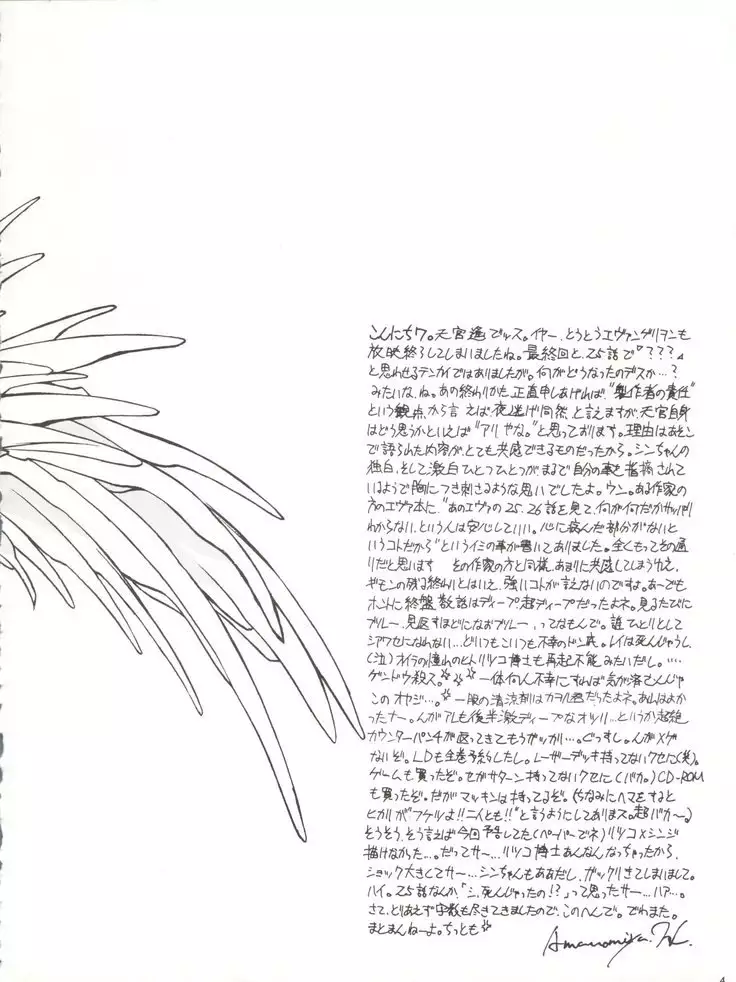 こんにちワ。天宮遥でッス。イヤー、とうとうエヴァンゲリヲンも
放映終了してしまいましたね。最終回と、25話で『???』
と思わせるテンカイではありましたが。何がどうなったのデスか…?
みたいな、ね。あの終わりかた、正直申しあげれば、"製作者の責任"
という観点から言えば、夜逃げ同然と言えますが、天宮自身
はどう思うかといえば"アリやな。"と思っております。理由はあそこ
で語られた内容が、とても共感できるものだったから。シンちゃんの
独白、そして激白ひとつひとつがまるで自分の事を指摘されて
いるようで胸につき刺さるような思いでしたよ。ウン。ある作家の
方のエヴァ本に、"あのエヴァの25、26話を見て、何が何だかサッパリ
わからない、という人は安心していい。心に病んだ部分がないと
いうコトだから"というイミの事が書いてありました。全くもってその通
りだと思います その作家の方と同様、あまりに共感してしまうゆえ、
ギモンの残る終わりとはいえ、強いコトが言えないのですよ。あ〜でも
ホントに終盤数話はディープ超ディープだったよネ。見るたびに
ブルー、見返すほどになおブルー、ってなもんで。誰ひとりとして
シアワセになれない…どいつもこいつも不幸のドン底。レイは死んじゃうし、
(泣)オイラの憧れのヒト、リツコ博士も再起不能みたいだし。…
ゲンドウ殺ス。一体何人不幸にすれば気が済むんじゃ
このオヤジ…。一服の清涼剤はカヲル君だったよネ。あれはよか
ったナー。んがアレも後半激ディープなオツリ…というか超絶
カウンターパンチが返ってきてもうガッカリ…。ぐっすし。んがメゲ
ないぞ。LDも全巻予約したし。レーザーデッキ持ってないクセに(笑)。
ゲームも買ったぞ。セガサターン持ってないクセに(バカ。)CD-ROM
も買ったぞ。だがマッキンは持ってるぞ。(ちなみにヘマをすると
ヒカリが"フケツよ!!ニイとも!!"と言うようにしてありまス。超バカ〜。)
そうそう、そう言えば今回予告してた(ペーパーでネ)リツコ×シンジ
描けなかった…。だってサー…リツコ博士あんなんなっちゃったから、
ショック大きくてサー…シンちゃんもああだし、ガックリきてしまいまして。
ハイ。25話なんか、「シ、死んじゃったの!?」って思ったサー…ハァ…。
さて、とりあえず字数も尽きてきましたので、このへんで。でわまた。
まとまんねーよ。ちっとも
Amanomiya.H.
4